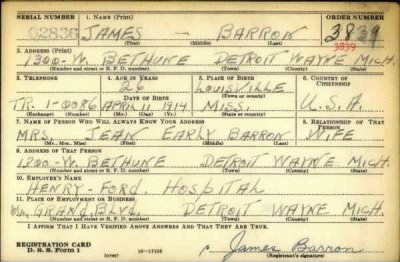 SERIAL NUMBER 1. NAME (Print) ORDER NUMBER
02836 JAMES - BARRON 3839
3839
(First) (Middle) (Last)
2. ADDRESS (Print)
1300-W. BETHUNE DETROIT WAYNE MICH.
(Number and street or R. F. D. number) (Town) (County) (State)
3. TELEPHONE 4. AGE IN YEARS 5. PLACE OF BIRTH 6. COUNTRY OF CITIZENSHIP
26 LOUISVILLE
DATE OF BIRTH (Town or county)
TR. 1-0086 APRIL 11 1914 MISS. U.S.A.
(Exchange) (Number) (Mo.) (Day) (Yr.) (State or country)
7. NAME OF PERSON WHO WILL ALWAYS KNOW YOUR ADDRESS 8. RELATIONSHIP OF THAT PERSON
MRS. JEAN EARLY BARRON WIFE
(Mr., Mrs., Miss) (First) (Middle) (Last)
9. ADDRESS OF THAT PERSON
1300-W. BETHUNE DETROIT WAYNE MICH.
(Number and street or R. F. D. number) (Town) (County) (State)
10. EMPLOYER'S NAME
HENRY-FORD, HOSPITAL
11. PLACE OF EMPLOYMENT OR BUSINESS
GRAND, BLVD. DETROIT WAYNE MICH.
(Number and street or R. F. D. number) (Town) (County) (State)
I AFFIRM THAT I HAVE VERIFIED ABOVE ANSWERS AND THAT THEY ARE TRUE.
REGISTRATION CARD
D. S. S. Form 1 (over) James Barron
(Registrant's signature)